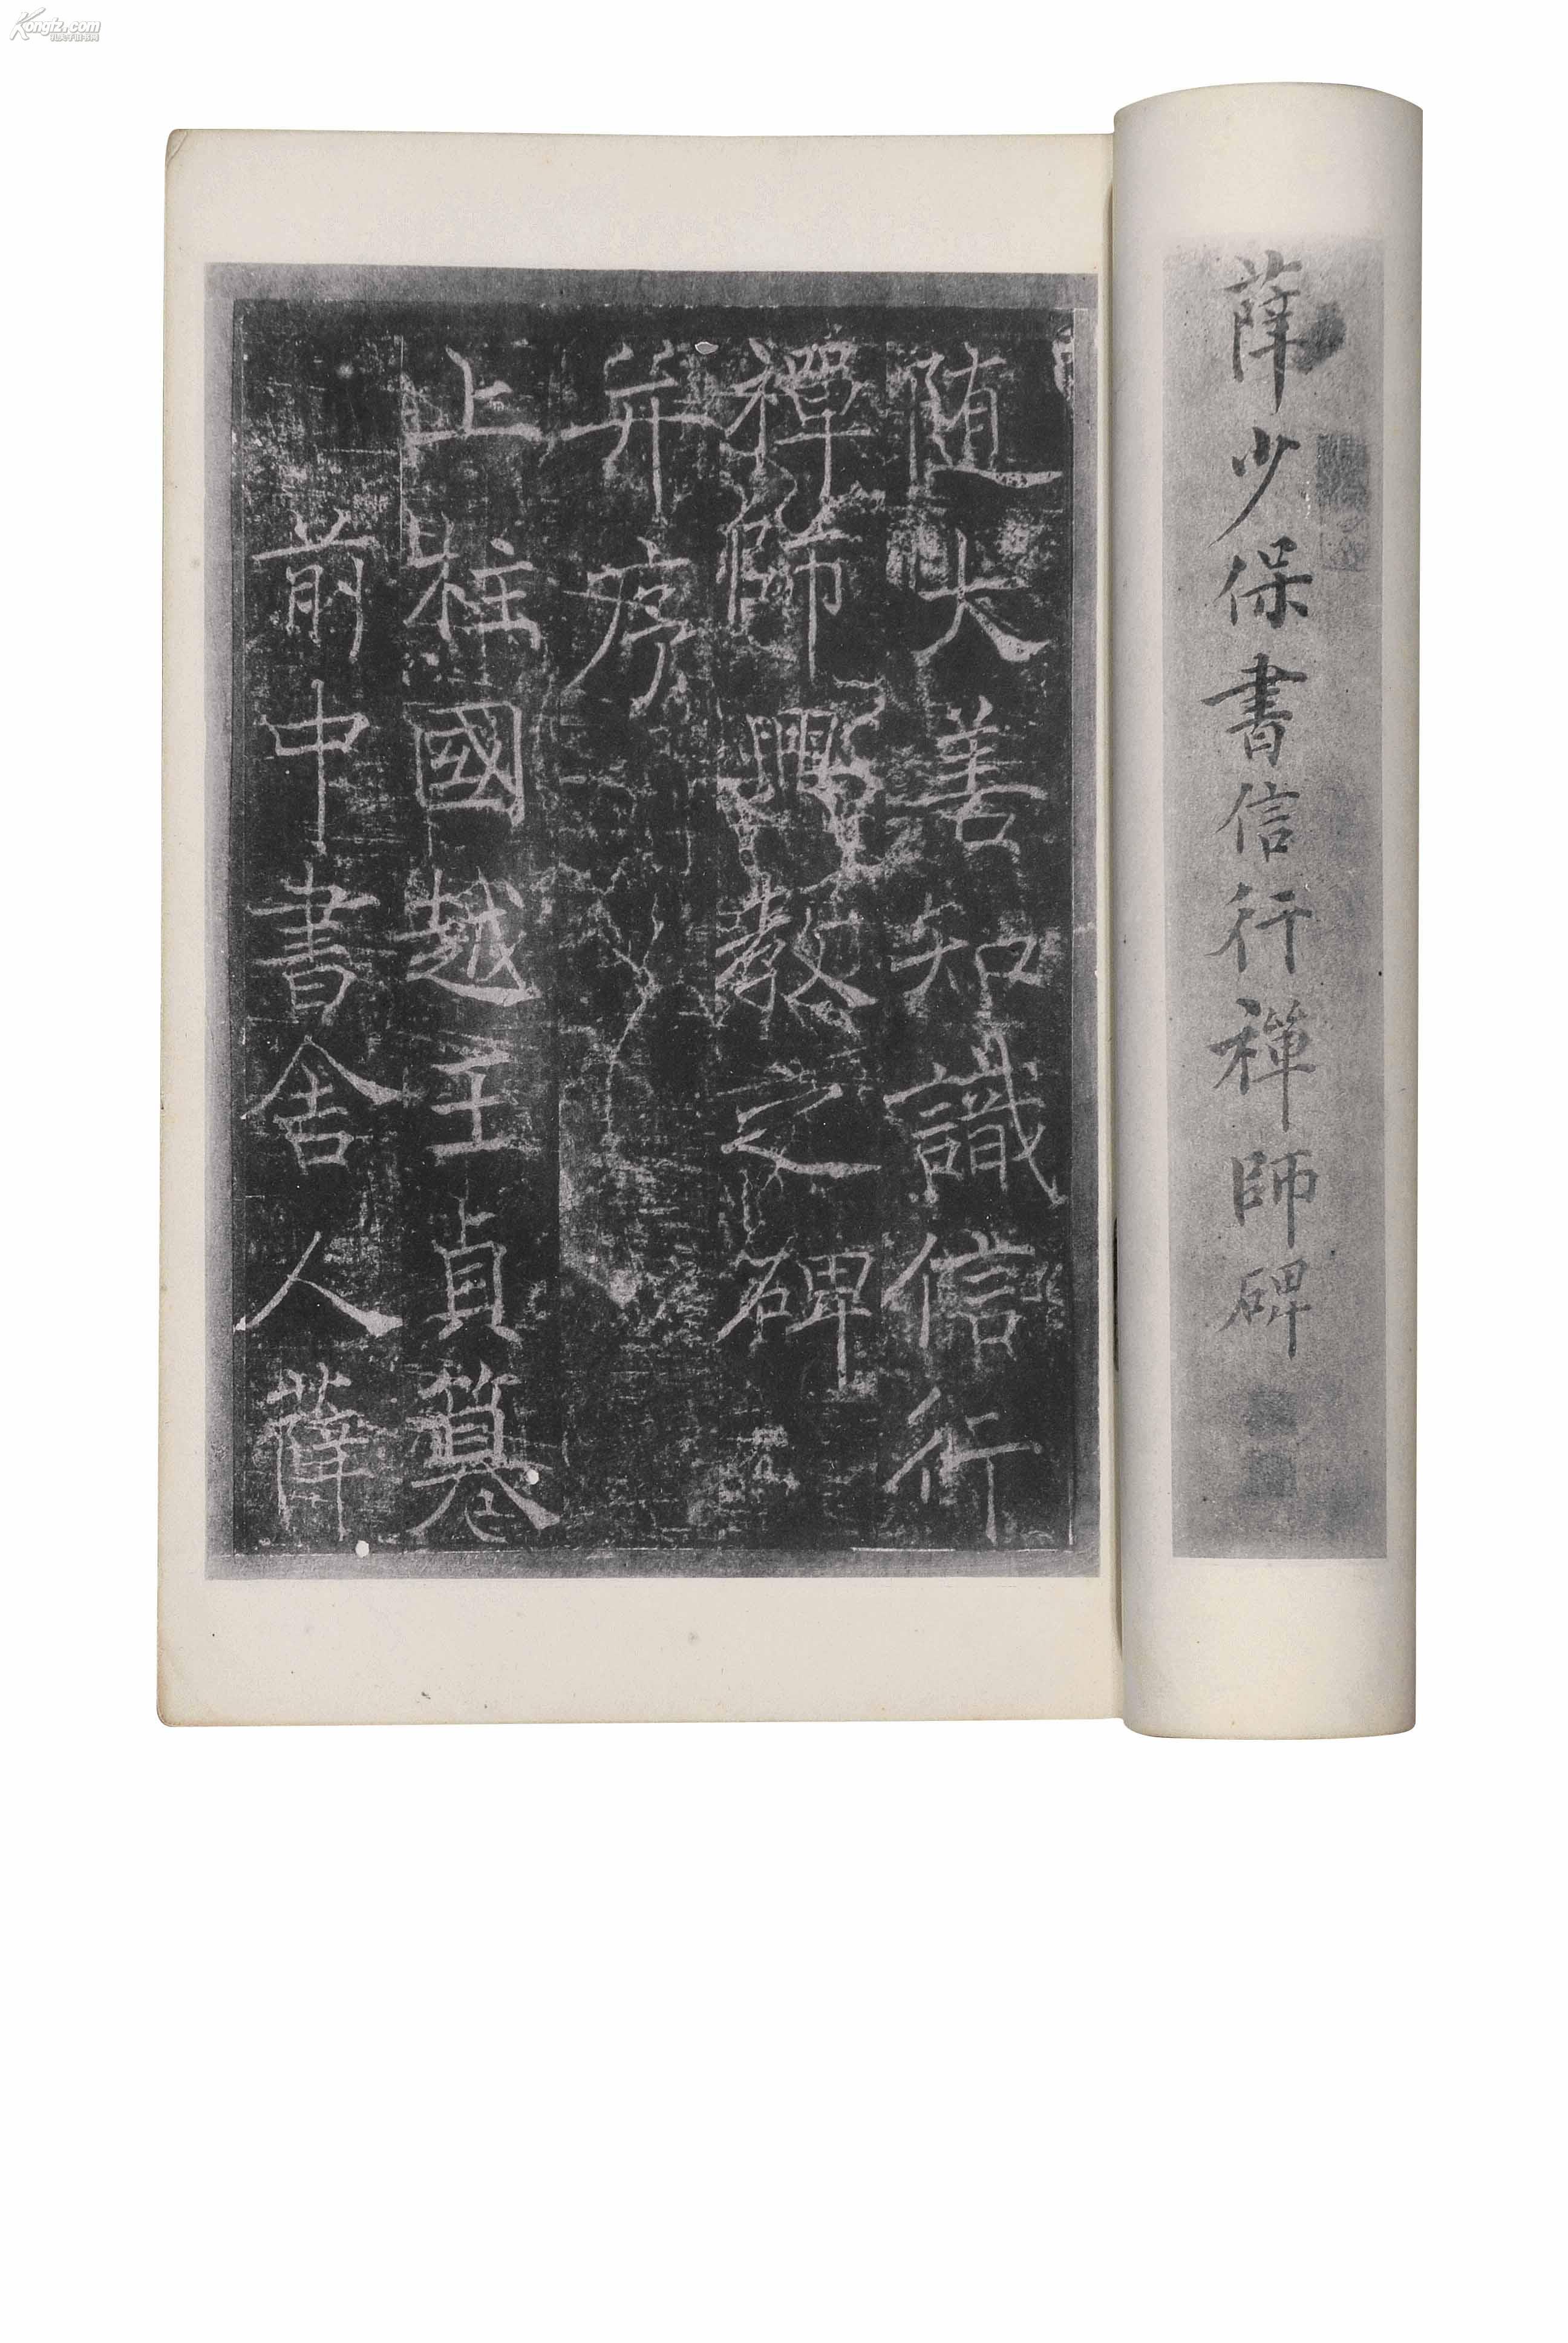 薛少保書信行禪師碑
随大善知識信行
禪師興教之碑
并序
上柱國越王貞撰
前中書舍人薛
Kongfz.com